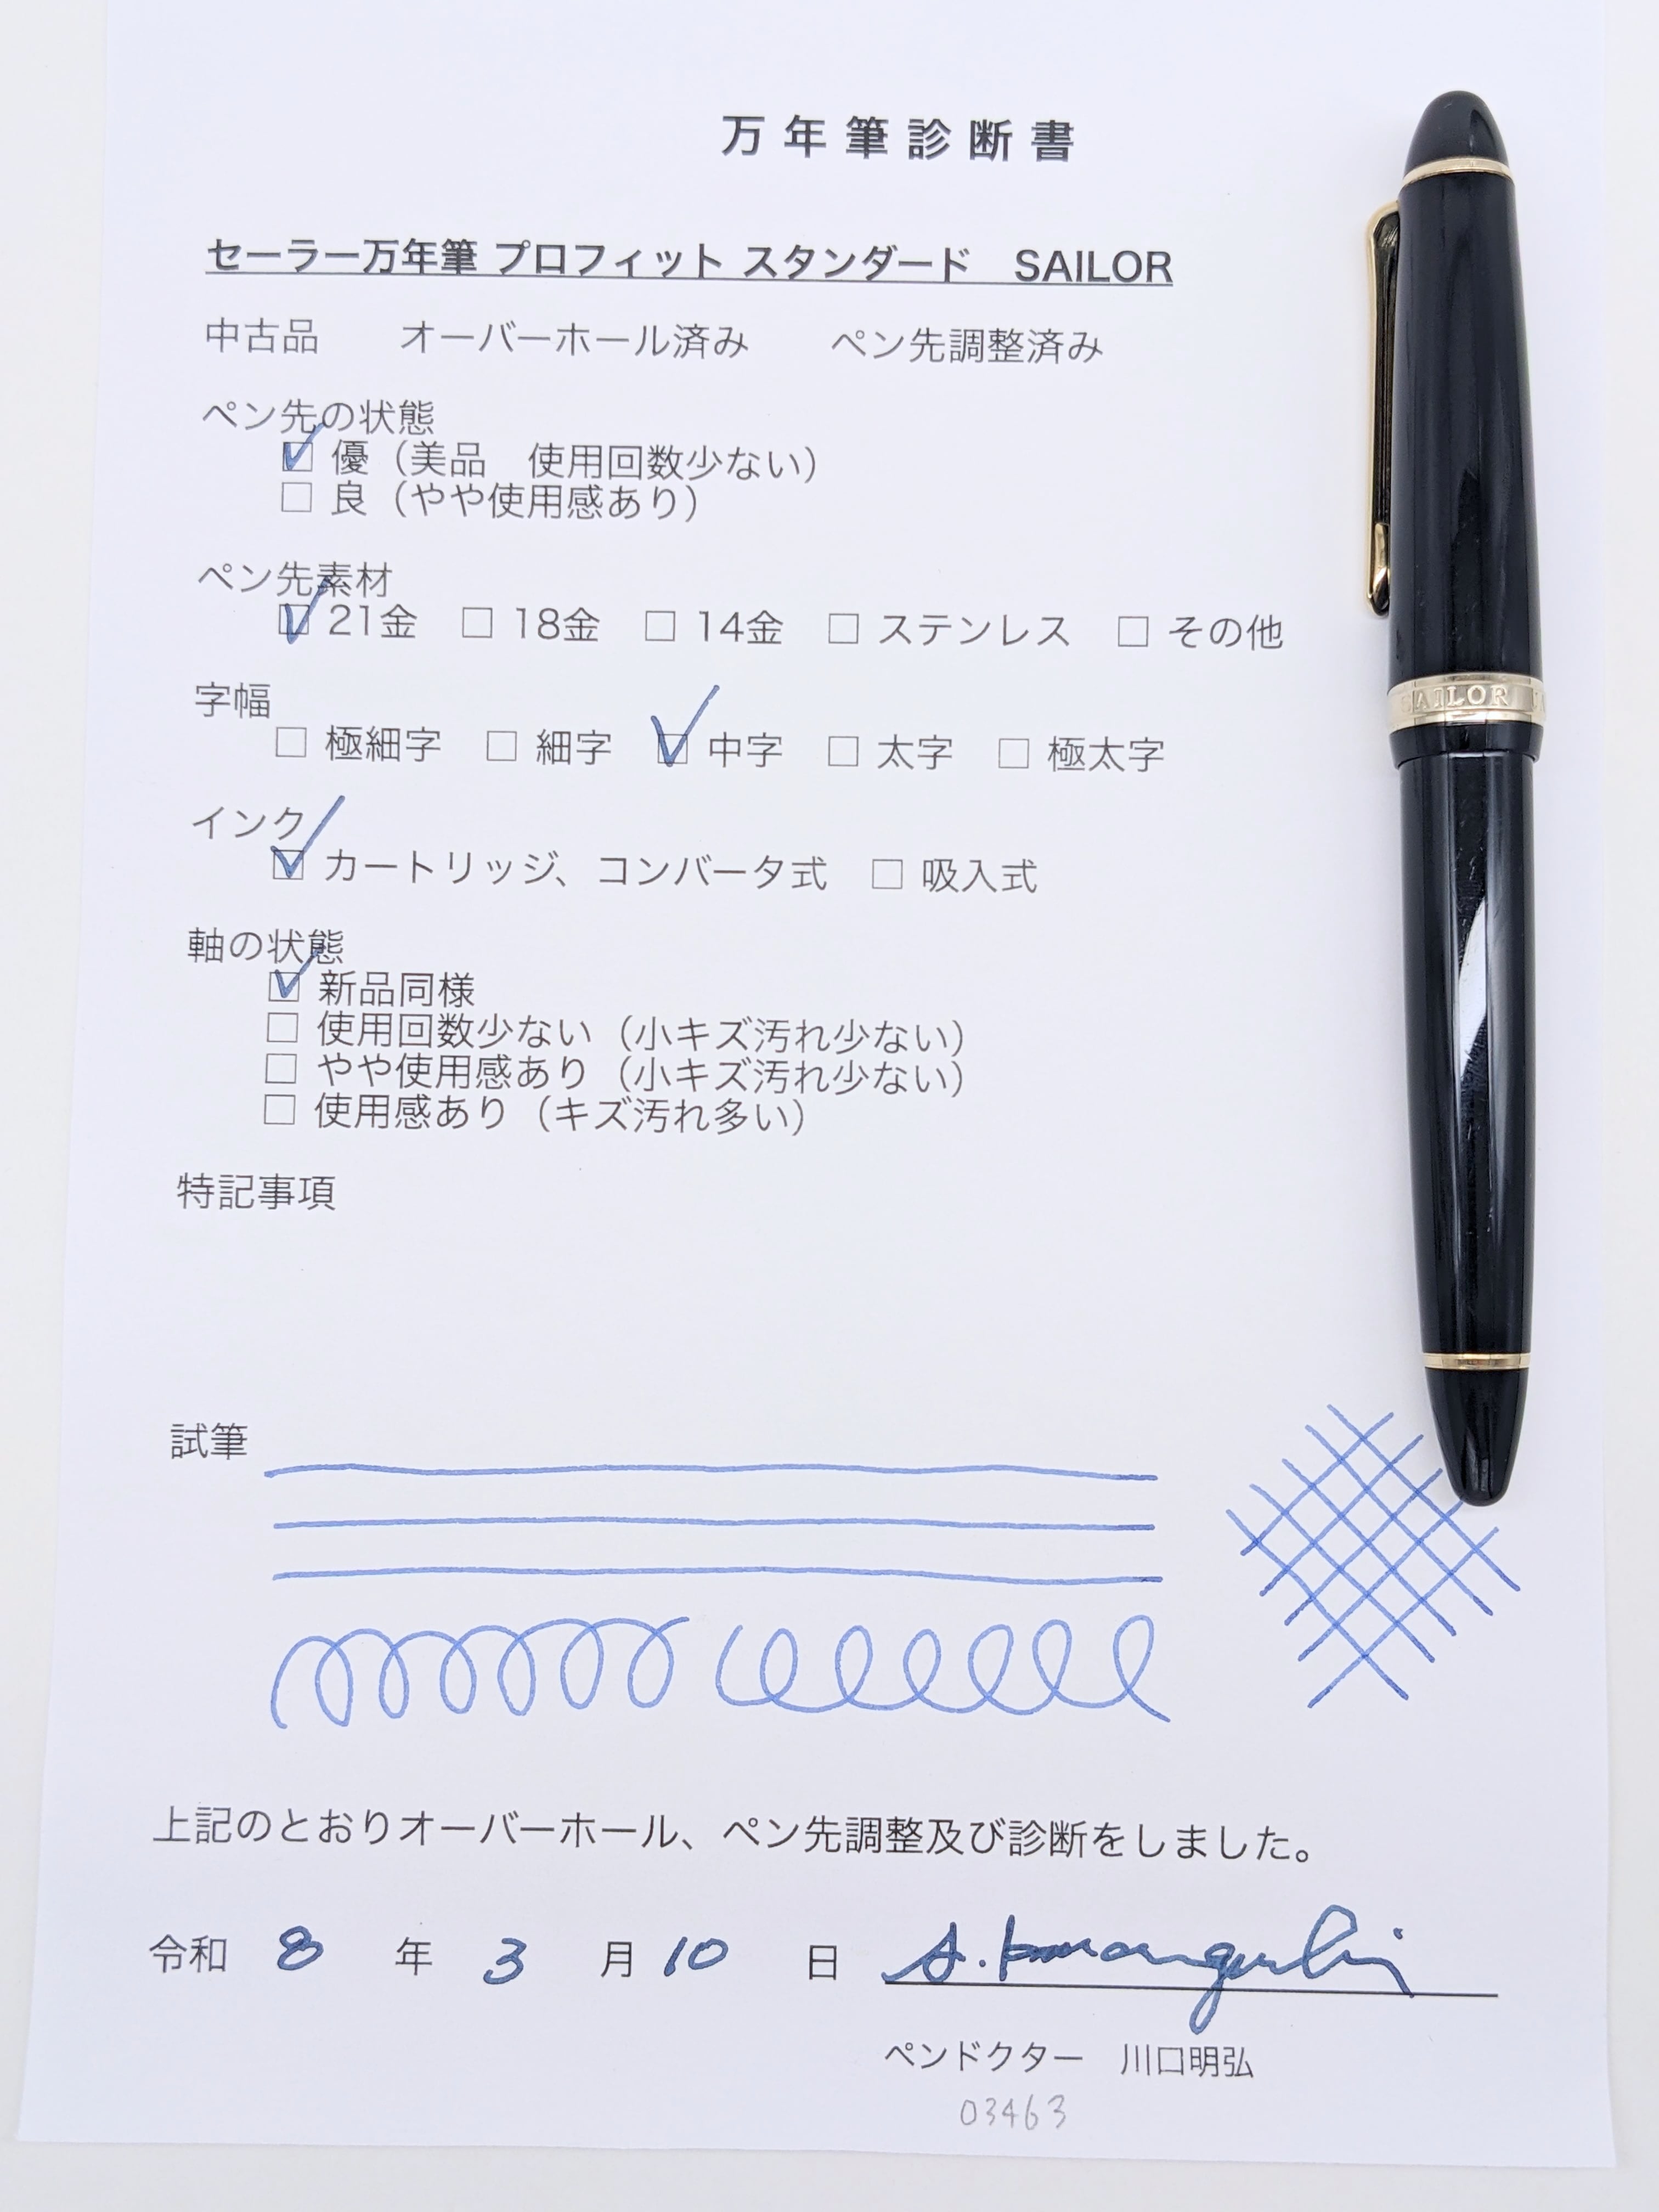 万年筆診断書
セーラー万年筆 プロフィット スタンダード　SAILOR
中古品　　オーバーホール済み　　ペン先調整済み
ペン先の状態
☑ 優（美品　使用回数少ない）
☐ 良（やや使用感あり）
ペン先素材
☑ 21金　☐ 18金　☐ 14金　☐ ステンレス　☐ その他
字幅
☐ 極細字　☐ 細字　☑ 中字　☐ 太字　☐ 極太字
インク
☑ カートリッジ、コンバータ式　☐ 吸入式
軸の状態
☑ 新品同様
☐ 使用回数少ない（小キズ汚れ少ない）
☐ やや使用感あり（小キズ汚れ少ない）
☐ 使用感あり（キズ汚れ多い）
特記事項
試筆
上記のとおりオーバーホール、ペン先調整及び診断をしました。
令和 8 年 3 月 10 日 A. Kawaguchi
ペンドクター　川口明弘
03463
SAILOR